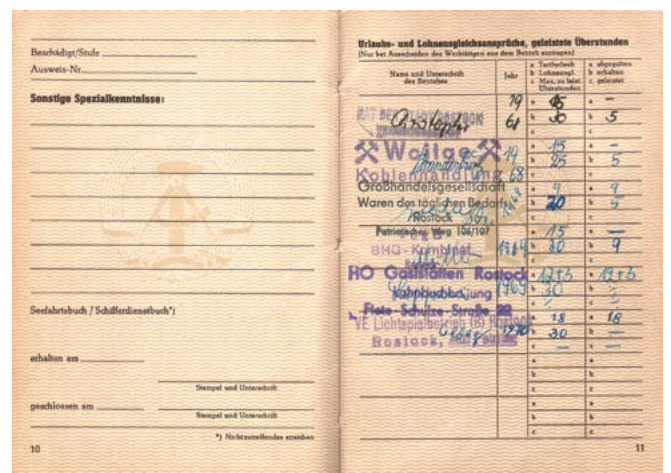 Beschädigt/Stufe
Ausweis-Nr.
Sonstige Spezialkenntnisse:
Seefahrtsbuch / Schifferdienstbuch*)
erhalten am
Stempel und Unterschrift
geschlossen am
Stempel und Unterschrift
*) Nichtzutreffendes streichen
10
Urlaubs- und Lohnausgleichsansprüche, geleistete Überstunden
(Nur bei Ausscheiden des Werktätigen aus dem Betrieb eintragen)
Name und Unterschrift des Betriebes
Jahr
a Tarifurlaub
b Lohnausgl.
c Max. zu leist. Überstunden
a abgegolten
b erhalten
c geleistet
19 a 15 a –
68 b 30 b 5
c c
Woitge 19 a 15 a –
Kohlenhandlung 68 b 25 b 5
c c
Großhandelsgesellschaft a 9 a 9
Waren des täglichen Bedarfs b 20 b 5
Rostock c c
Patriotischer Weg 106/107 a 15 a –
BHG-Kombinat 1969 b 30 b 9
c c
HO Gaststätten Rostock a 12+5 a 12+5
1969 b 30 b
c c
Fiete-Schulze-Straße 22 a 18 a 18
VE Lichtspielbetrieb (B) Rostock 1970 b 30 b –
Rostock, c – c –
a a
b b
c c
a a
b b
c c
11